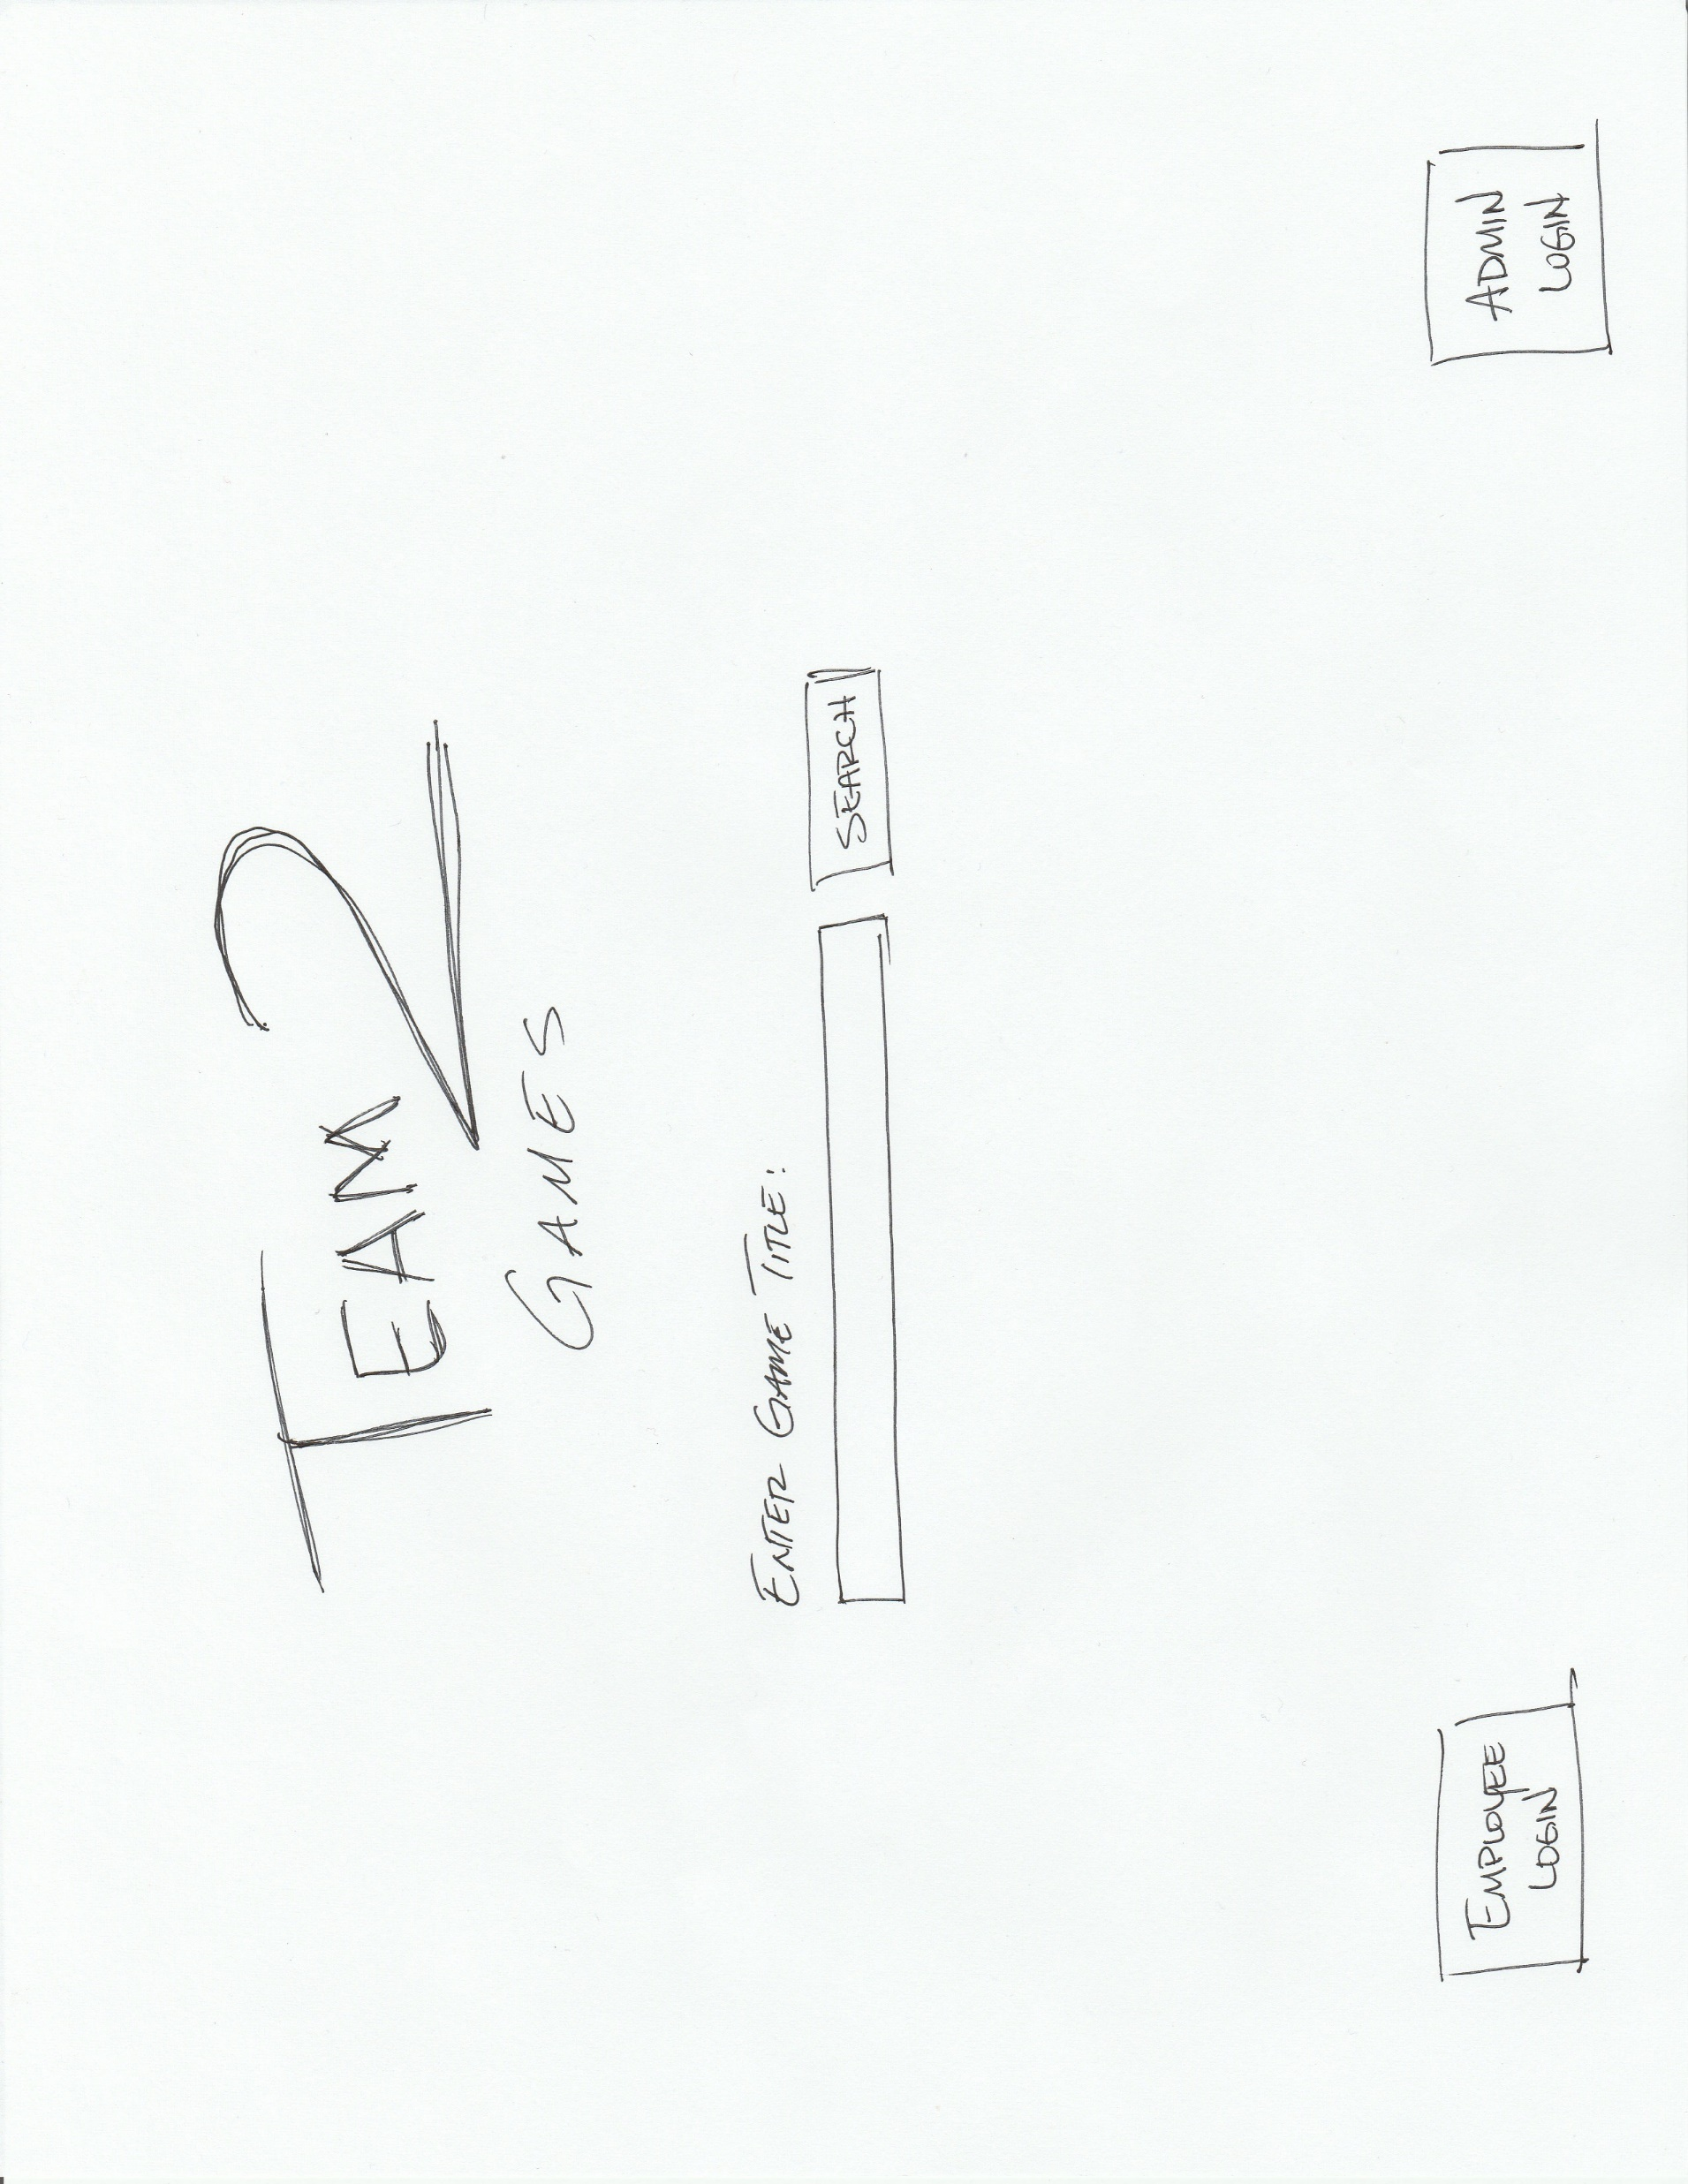 TEAM 2
GAMES
ENTER GAME TITLE:
SEARCH
EMPLOYEE
LOGIN
ADMIN
LOGIN